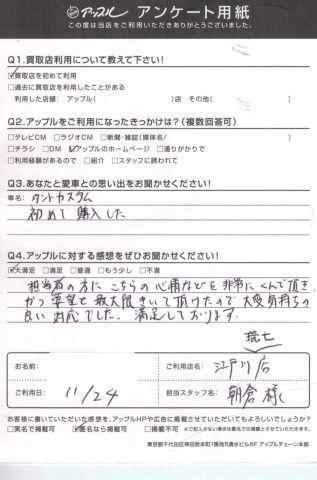 アップル アンケート用紙
この度は当店をご利用いただきありがとうございました。
Q1.買取店利用について教えて下さい!
☑買取店を初めて利用
□過去に買取店を利用したことがある
利用した店舗: アップル( )店 その他( )
Q2.アップルをご利用になったきっかけは?(複数回答可)
□テレビCM □ラジオCM □新聞・雑誌(媒体名/ )
□チラシ □DM ☑アップルのホームページ □通りがかりで
□利用経験があるので □紹介 □スタッフに誘われて
Q3.あなたと愛車との思い出をお聞かせください!
車名: タントカスタム
初めて購入した
Q4.アップルに対する感想をぜひお聞かせください!
☑大満足 □満足 □普通 □もう少し □不満
担当者の方に こちらの心情などを非常にくんで頂き、
かつ要望を最大限きいて頂けたので大変気持ちの
良い対応でした。満足しております。
お名前:
ご利用店名: 江戸川店
ご利用日: 11/24
担当スタッフ名: 朝倉 様
お客様に書いていただいた感想を、アップルHPや広告に掲載させていただいてもよろしいでしょうか?
□実名で掲載可 ☑匿名なら掲載可 □掲載不可 ※ご記入がない場合は匿名での掲載とさせていただきます。
東京都千代田区神田岩本町1番地5清水ビル6F アップルチェーン本部